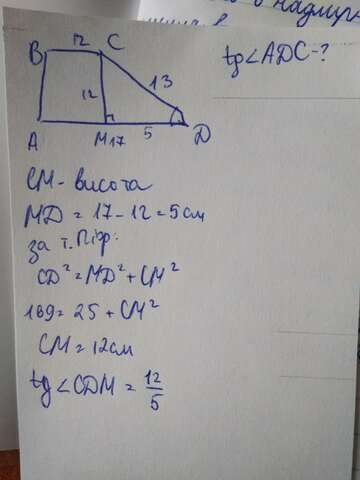 12
B C tg∠ADC-?
12 13
A M 17 5 D
CM - висота
MD = 17 - 12 = 5 см
за т. Піф:
CD² = MD² + CM²
169 = 25 + CM²
CM = 12 см
tg∠CDM = 12/5